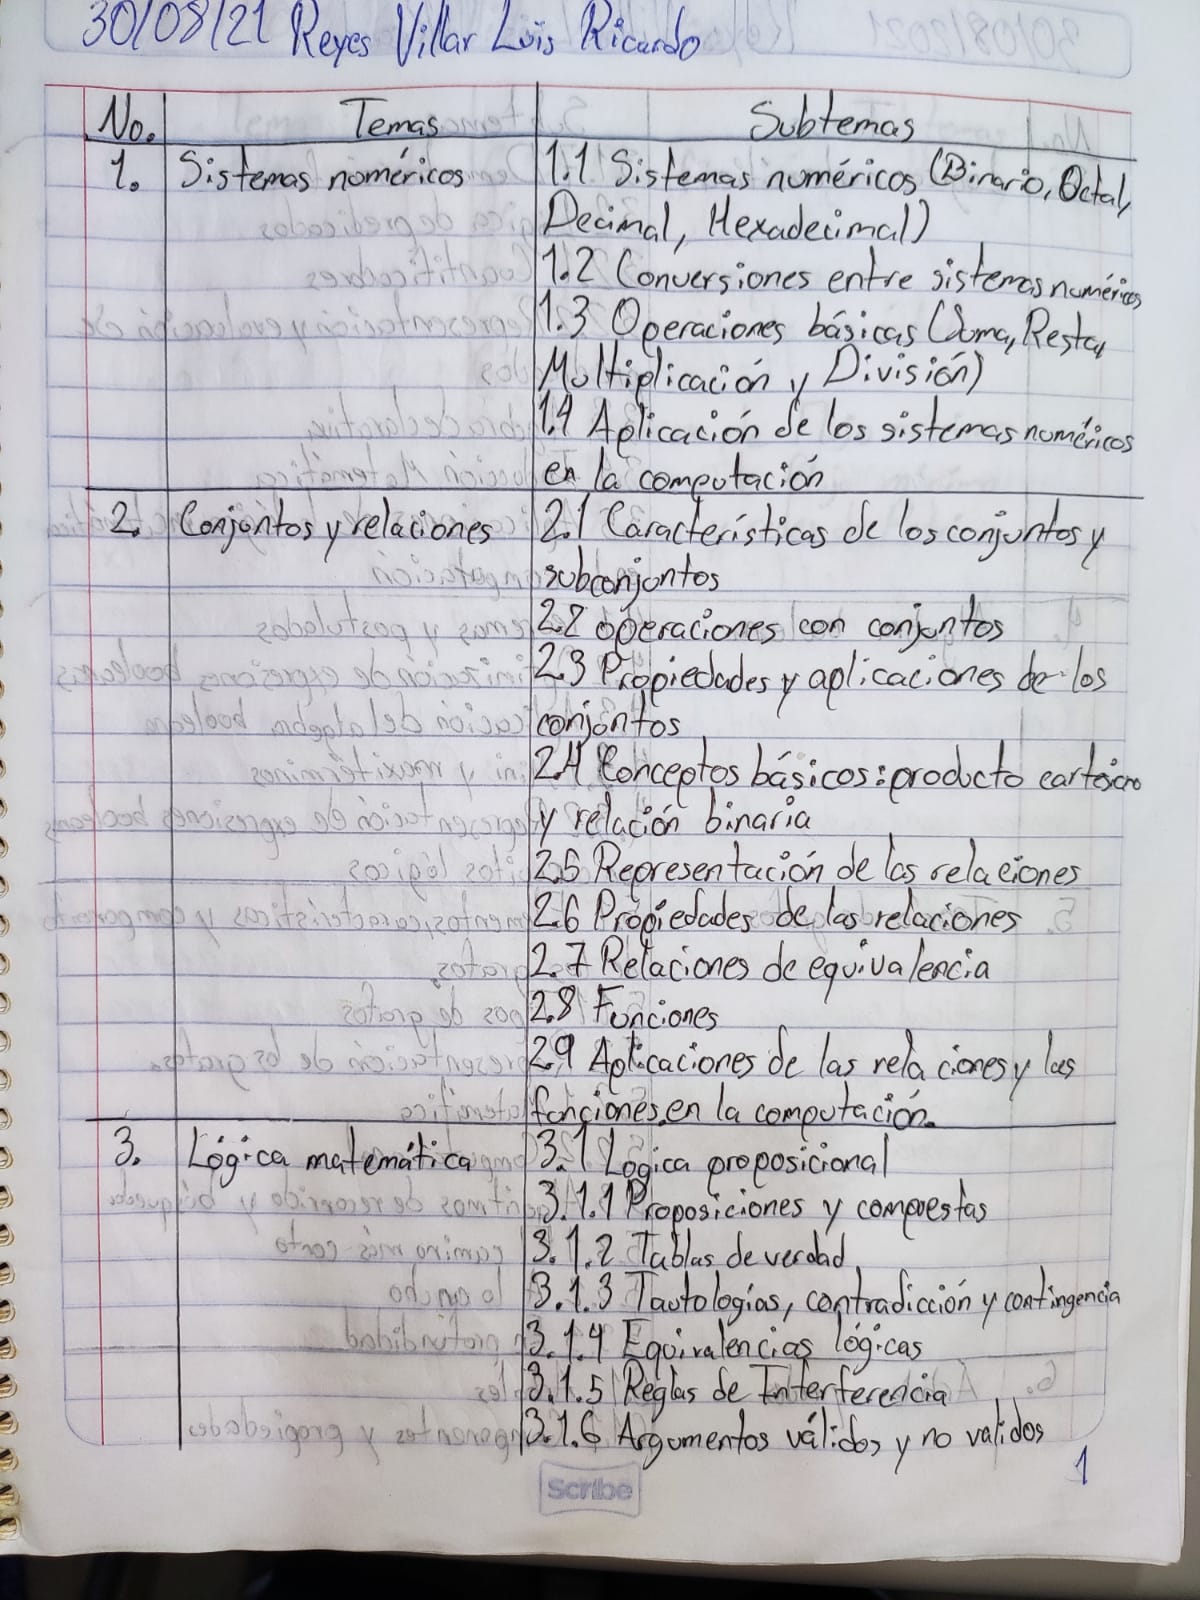 30/08/21 Reyes Villar Luis Ricardo
No. Temas Subtemas
1. Sistemas numéricos 1.1 Sistemas numéricos (Binario, Octal,
Decimal, Hexadecimal)
1.2 Conversiones entre sistemas numéricos
1.3 Operaciones básicas (Suma, Resta,
Multiplicación y División)
1.4 Aplicación de los sistemas numéricos
en la computación
2. Conjuntos y relaciones 2.1 Características de los conjuntos y
subconjuntos
2.2 operaciones con conjuntos
2.3 Propiedades y aplicaciones de los
conjuntos
2.4 Conceptos básicos: producto cartesiano
y relación binaria
2.5 Representación de las relaciones
2.6 Propiedades de las relaciones
2.7 Relaciones de equivalencia
2.8 Funciones
2.9 Aplicaciones de las relaciones y las
funciones en la computación.
3. Lógica matemática 3.1 Lógica proposicional
3.1.1 Proposiciones y compuestas
3.1.2 Tablas de verdad
3.1.3 Tautologías, contradicción y contingencia
3.1.4 Equivalencias lógicas
3.1.5 Reglas de Interferencia
3.1.6 Argumentos válidos y no validos
1
Scribe